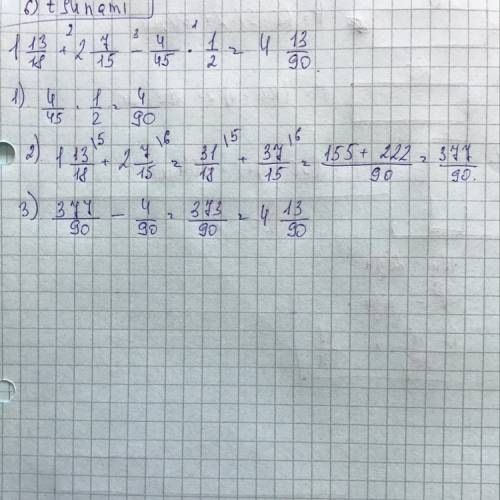 6) tsunami
1 13/18 + 2 7/15 - 4/45 · 1/2 = 4 13/90.
1) 4/45 · 1/2 = 4/90
2) 1 13/18 \5 + 2 7/15 \6 = 31/18 \5 + 37/15 \6 = 155 + 222/90 = 377/90.
3) 377/90 - 4/90 = 373/90 = 4 13/90